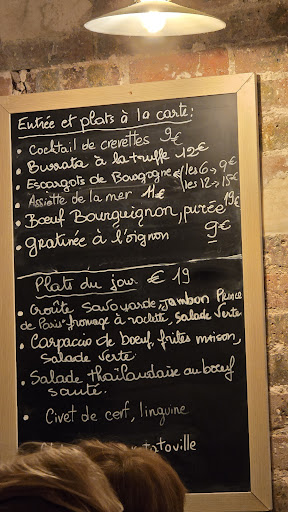 Entrée et plats à la carte:
• Cocktail de crevettes 9€
• Burrata à la truffe 12€
• Escargots de Bourgogne les 6→9€
les 12→15€
• Assiette de la mer 11€
• Bœuf Bourguignon, purée 19€
• gratinée à l'oignon 9€
Plats du jour € 19
• Croûte Savoyarde, Jambon Prince
de Paris, fromage à raclette, salade verte
• Carpaccio de bœuf, frites maison,
salade verte
• Salade thaïlandaise au bœuf
sauté.
• Civet de cerf, linguine